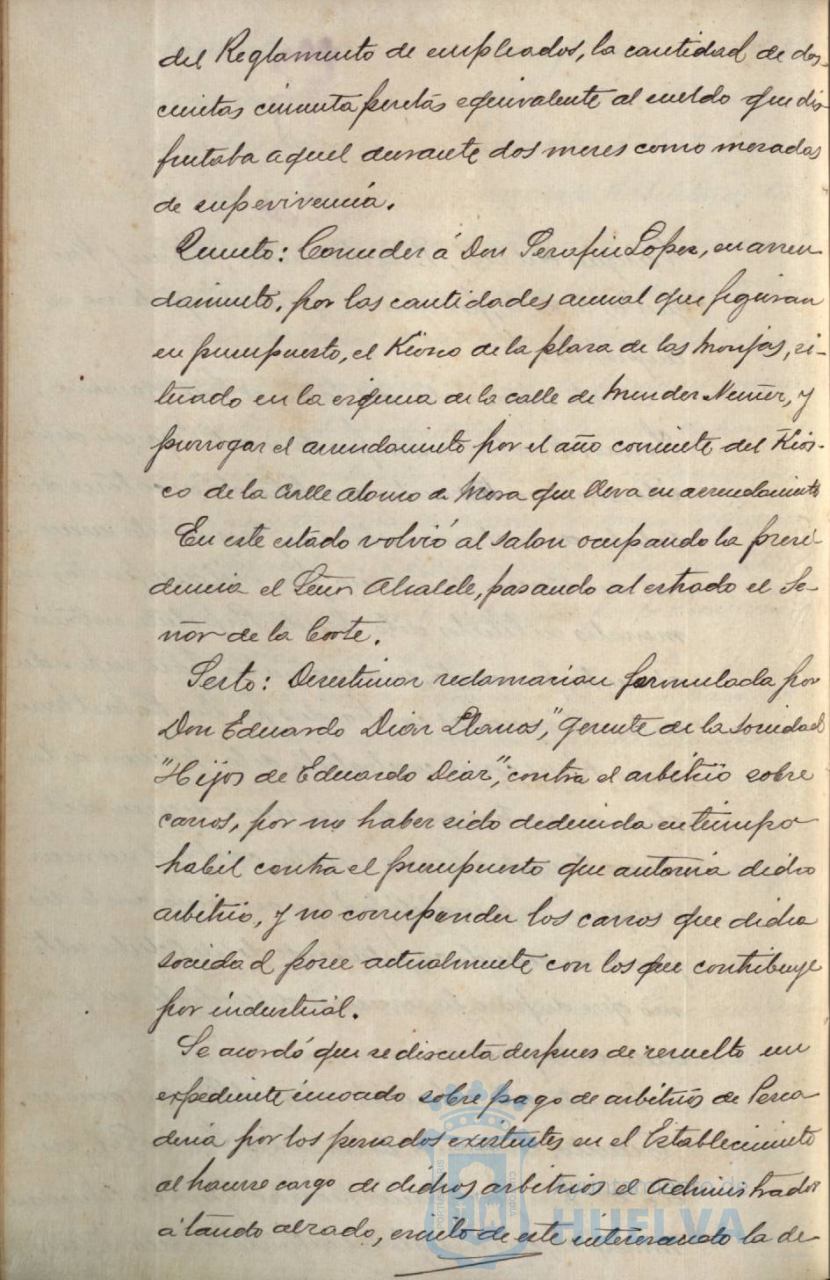 del Reglamento de empleados, la cantidad de dos-
cientas cincuenta pesetas equivalente al sueldo que dis-
frutaba aquel durante dos meses como mesadas
de supervivencia.
Quinto: Conceder á Don Serafin Lopez, en arren
damiento, por las cantidades anual que figuran
en presupuesto, el Kiosco de la plaza de las Monjas, si-
tuado en la esquina de la calle de Mendez Nuñez, y
prorrogar el arrendamiento por el año corriente del Kios-
co de la calle Alonso de Mora que lleva en arrendamiento
En este estado volvió al salon ocupando la presi-
dencia el Señor Alcalde, pasando al estrado el Se-
ñor de la Corte.
Sexto: Desestimar reclamacion formulada por
Don Eduardo Diaz Llanos," gerente de la sociedad
"Hijos de Eduardo Diaz", contra el arbitrio sobre
carros, por no haber sido deducida en tiempo
habil contra el presupuesto que autoriza dicho
arbitrio, y no corresponder los carros que dicha
sociedad posee actualmente con los que contribuye
por industrial.
Se acordó que se discuta despues de resuelto un
expediente incoado sobre pago de arbitrios de Pesca
deria por los pescados existentes en el Establecimiento
al hacerse cargo de dichos arbitrios el Administrador
á tanto alzado, escrito de este interesando la de-
HUELVA